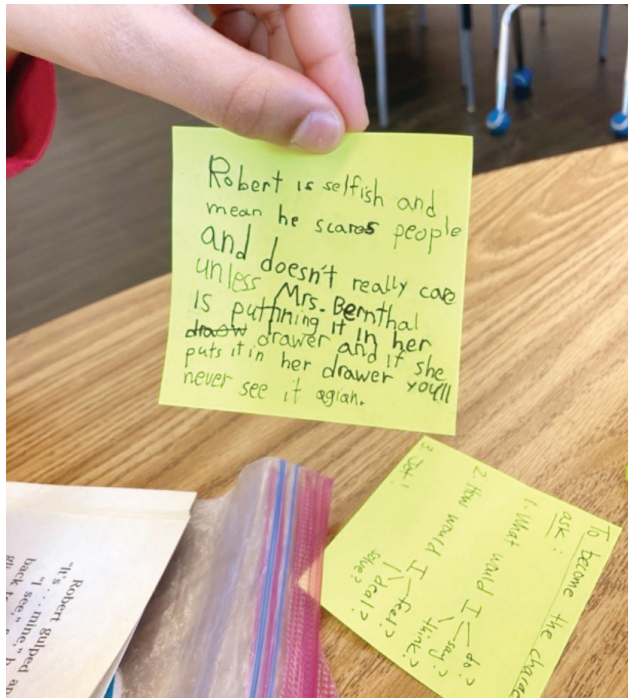 Robert is selfish and
mean he scares people
and doesn't really care
unless Mrs. Bernthal
is puttining it in her
draow drawer and if she
puts it in her drawer you'll
never see it agian.
To become the charac
ask:
1. What would I do?
say?
think?
2. How would I feel?
deal?
solve?
3. Jot!
Robert gulped an
"It's . . . mine," h
"I see,"
back t